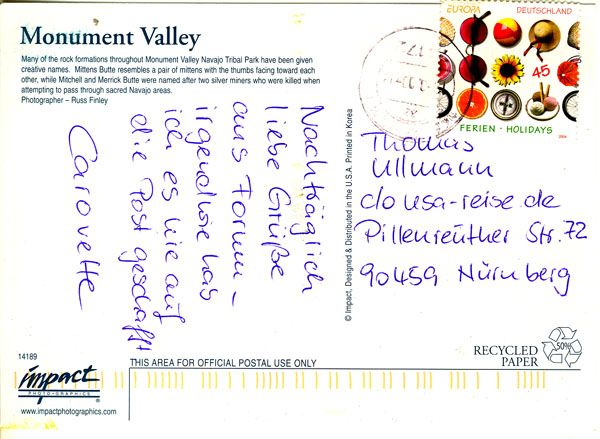 Monument Valley
Many of the rock formations throughout Monument Valley Navajo Tribal Park have been given
creative names. Mittens Butte resembles a pair of mittens with the thumbs facing toward each
other, while Mitchell and Merrick Butte were named after two silver miners who were killed when
attempting to pass through sacred Navajo areas.
Photographer – Russ Finley
Nachträglich
liebe Grüße
aus Forum –
irgendwie hab
ich es nie auf
die Post geschafft
Carovette
© Impact, Designed & Distributed in the U.S.A. Printed in Korea
EUROPA
DEUTSCHLAND
45
FERIEN · HOLIDAYS
2004
Thomas
Ullmann
c/o usa-reise.de
Pillenreuther Str. 72
90459 Nürnberg
14189
impact
PHOTOGRAPHICS
www.impactphotographics.com
THIS AREA FOR OFFICIAL POSTAL USE ONLY
RECYCLED
PAPER
50%